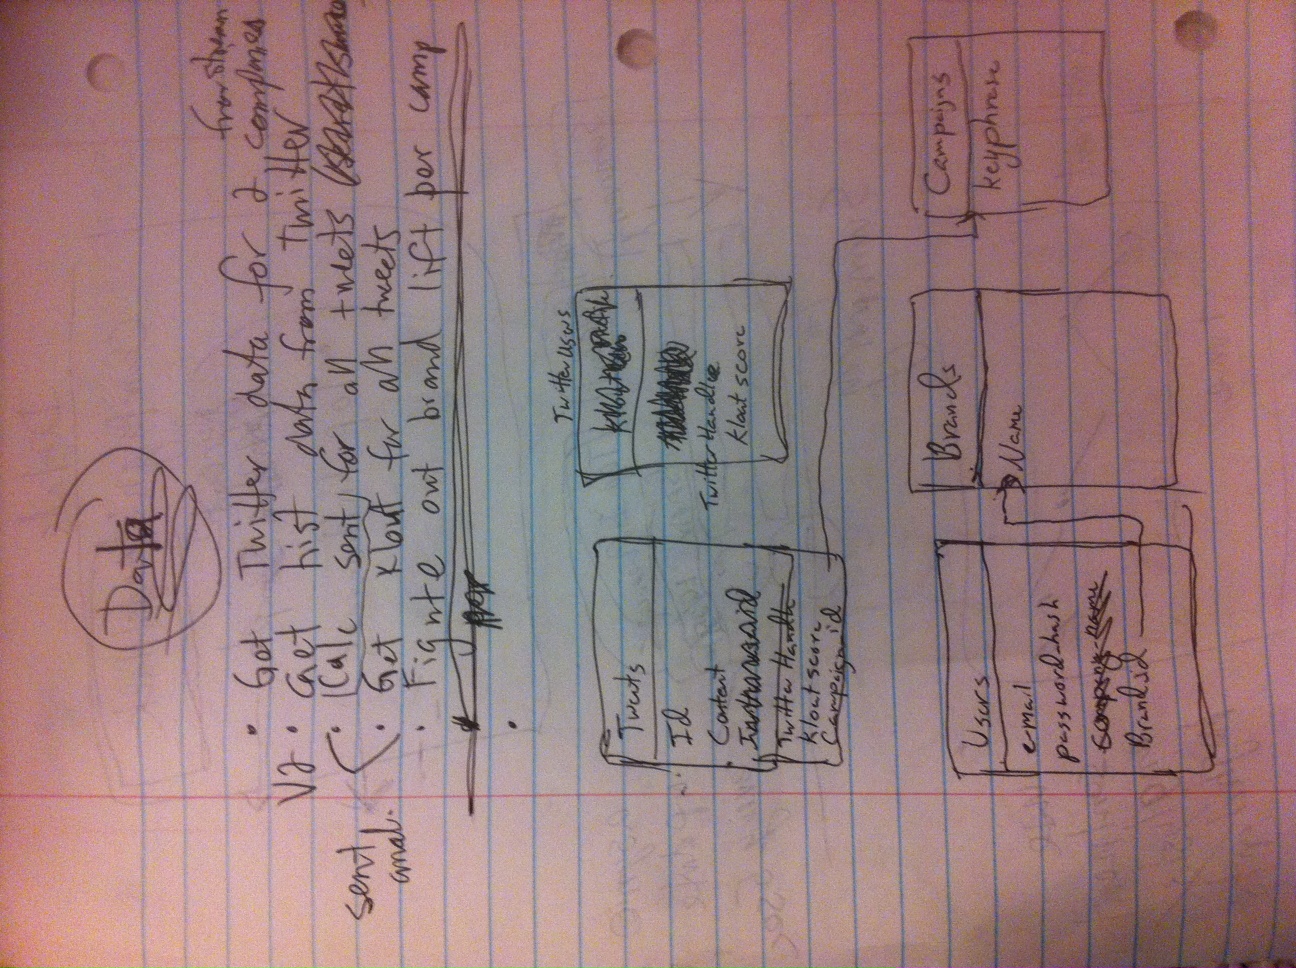 Data
from stream
• Get Twitter data for 2 companies
V2 • Get hist data from Twitter
• Calc sent, for all tweets
sent anal.
• Get Klout for all tweets
• Figure out brand lift per camp
Twitter Users
Tweets
Id
Content
Twitter Handle
Klout score
Campaign_id
Twitter Handle
Klout score
Users
e-mail
password_hash
company_name
Brand_id
Brands
Name
Campaigns
keyphrase